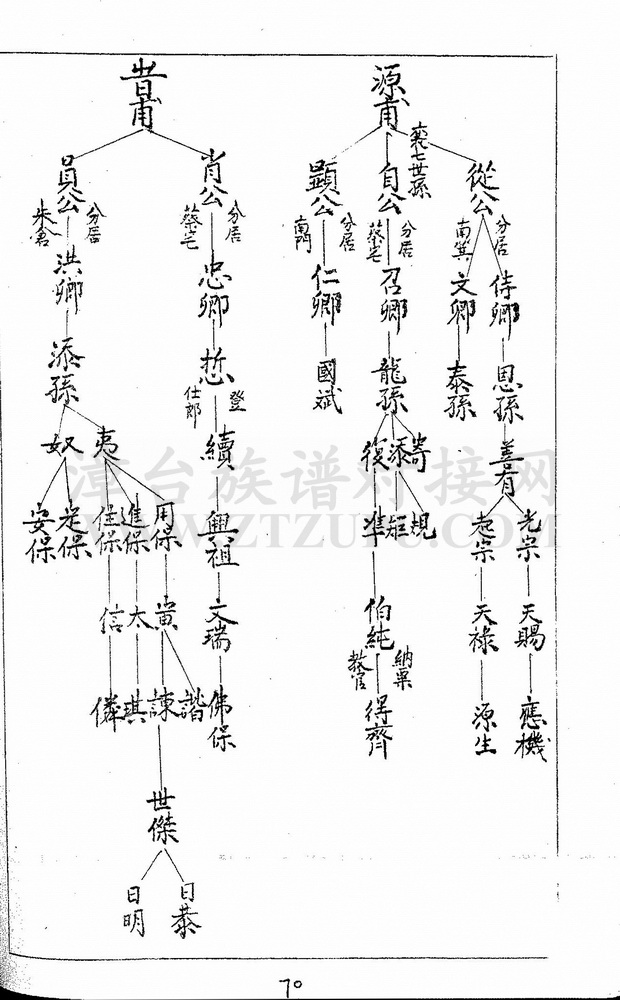 源甫
奭七世孫
從公
分居
南箕
侍卿
恩孫
善有
光宗
天賜
應機
老宗
天祿
源生
文卿
泰孫
自公
分居
蔡宅
召卿
龍孫
寄
規
添
矩
復
準
伯純
納粟
教官
得齊
顯公
分居
南門
仁卿
國斌
昔甫
肖公
分居
蔡宅
忠卿
悊
登
仕郎
續
興祖
文瑞
佛保
員公
分居
朱倉
洪卿
添孫
夷
用保
黃
諧
諫
世傑
日恭
日明
進保
太
琪
住保
信
奴
定保
安保
漳台族谱对接网
WWW.ZTZUPU.COM
70